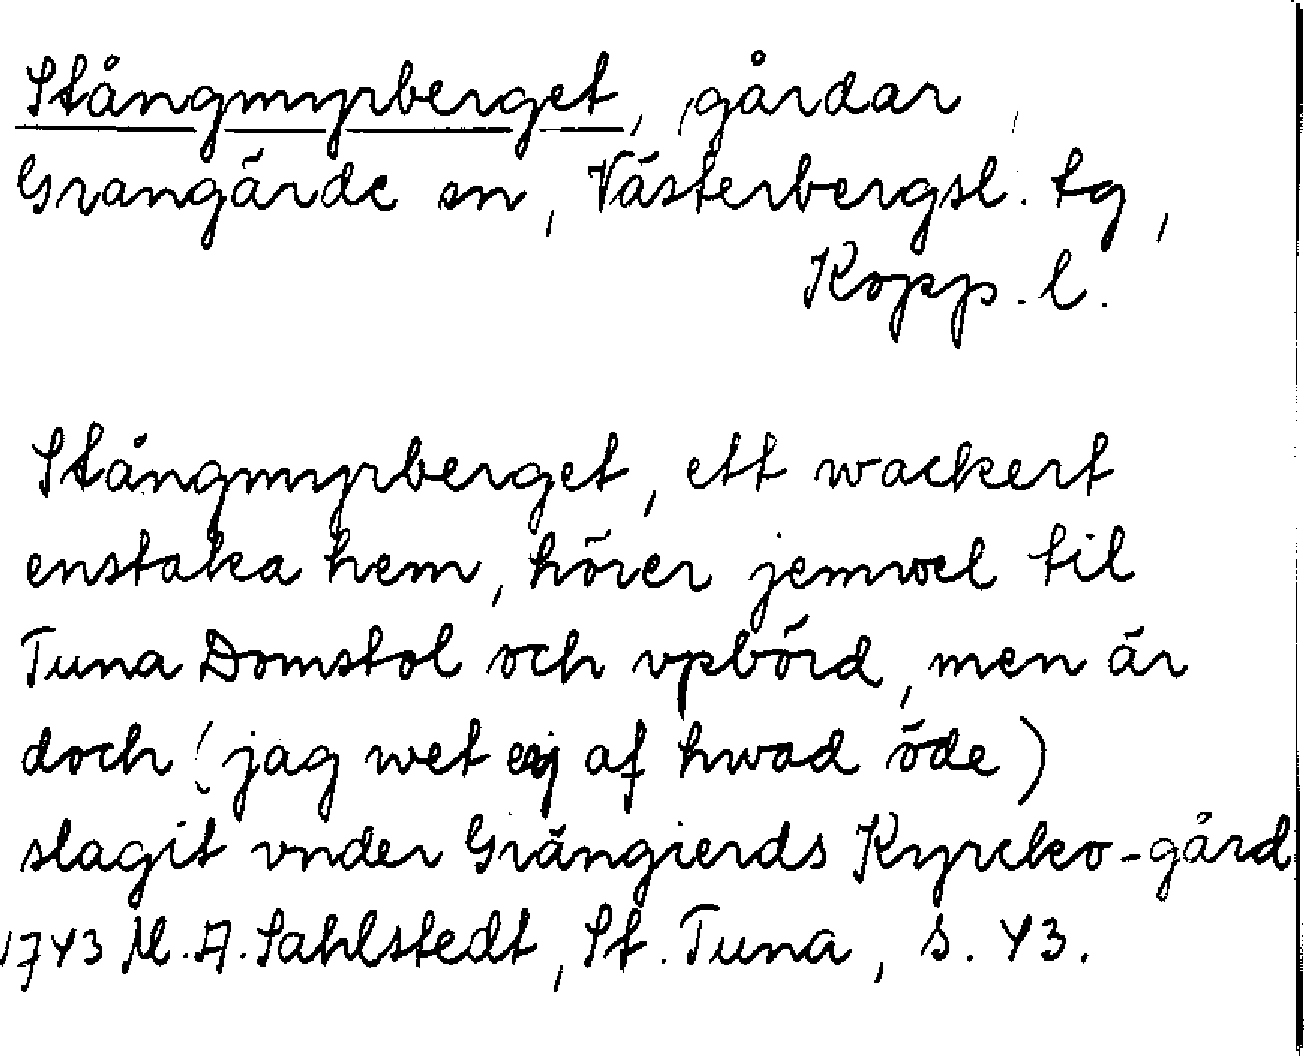 Stångmyrberget, gårdar,
Grangärde sn, Västerbergsl. tg,
Kopp. l.
Stångmyrberget, ett wackert
enstaka hem, hörer jemwel til
Tuna Domstol och vpbörd, men är
doch (jag wet ej af hwad öde)
slagit vnder Grängierds Kyrcko-gård
1743 M. A. Sahlstedt, St. Tuna, s. 43.